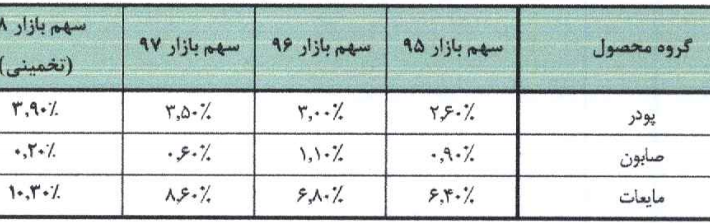 گروه محصول	سهم بازار ۹۵	سهم بازار ۹۶	سهم بازار ۹۷	سهم بازار ۸
(تخمینی)
پودر	۲,۶۰٪	۳,۰۰٪	۳,۵۰٪	۳,۹۰٪
صابون	۰,۹۰٪	۱,۱۰٪	۰,۶۰٪	۰,۲۰٪
مایعات	۶,۴۰٪	۶,۸۰٪	۸,۶۰٪	۱۰,۳۰٪